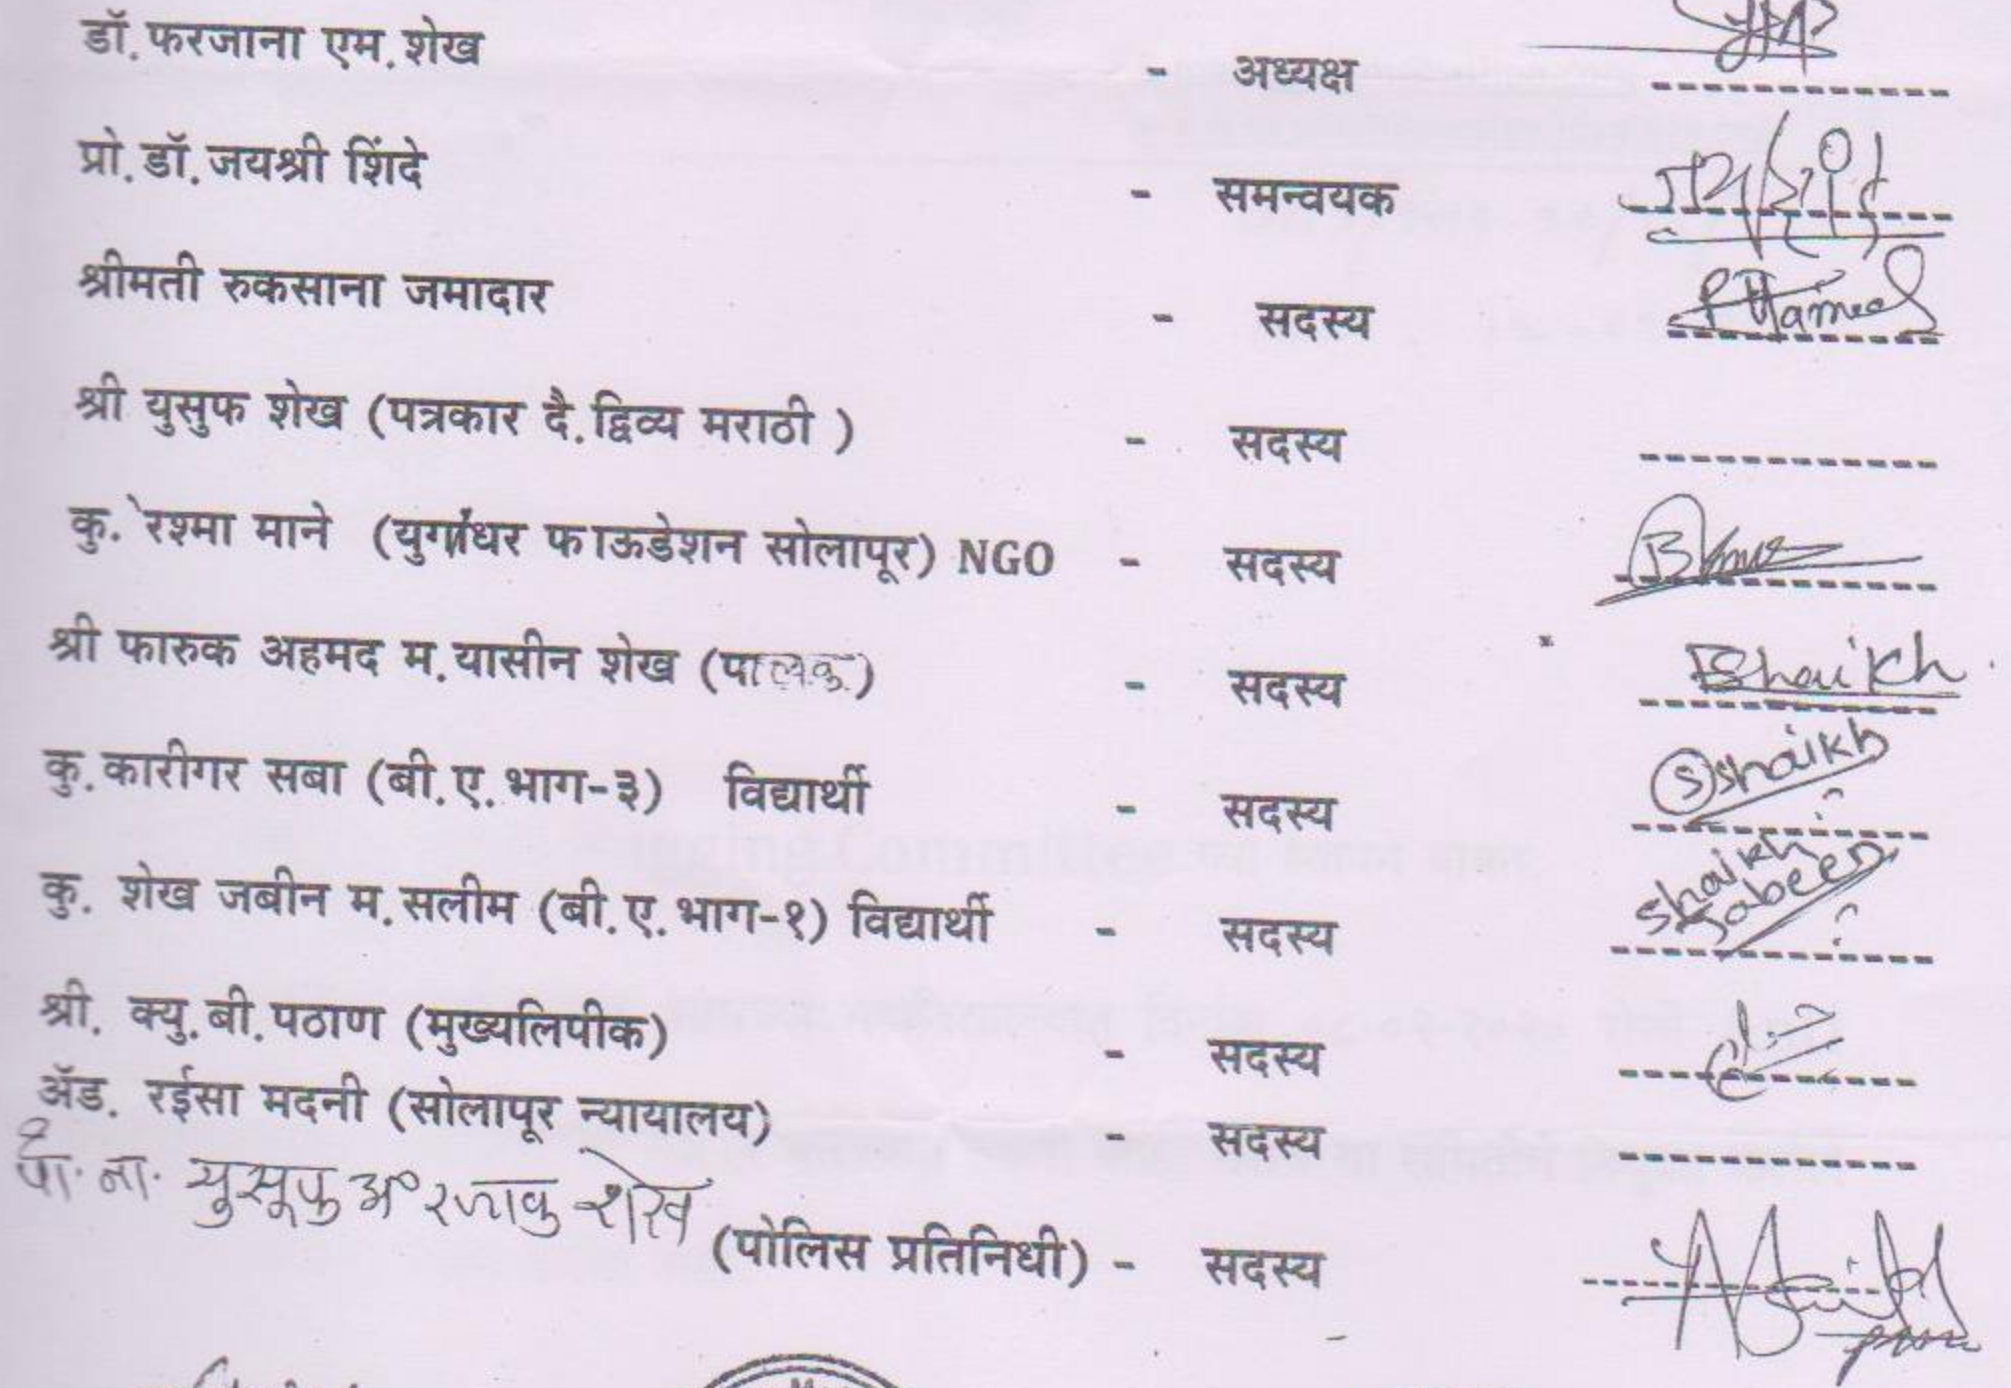 डॉ. फरजाना एम. शेख - अध्यक्ष
प्रो. डॉ. जयश्री शिंदे - समन्वयक
श्रीमती रुकसाना जमादार - सदस्य
श्री युसुफ शेख (पत्रकार दै. द्विव्य मराठी ) - सदस्य
कु. रेश्मा माने (युगांधर फाऊडेशन सोलापूर) NGO - सदस्य
श्री फारुक अहमद म. यासीन शेख (पालक) - सदस्य Shaikh
कु. कारीगर सबा (बी. ए. भाग-३) विद्यार्थी - सदस्य S Shaikh
कु. शेख जबीन म. सलीम (बी. ए. भाग-१) विद्यार्थी - सदस्य Shaikh Jabeen
श्री. क्यु. बी. पठाण (मुख्यलिपीक) - सदस्य
ॲड. रईसा मदनी (सोलापूर न्यायालय) - सदस्य
पो. ना. युसूफ अ० रजाक शेख (पोलिस प्रतिनिधी) - सदस्य